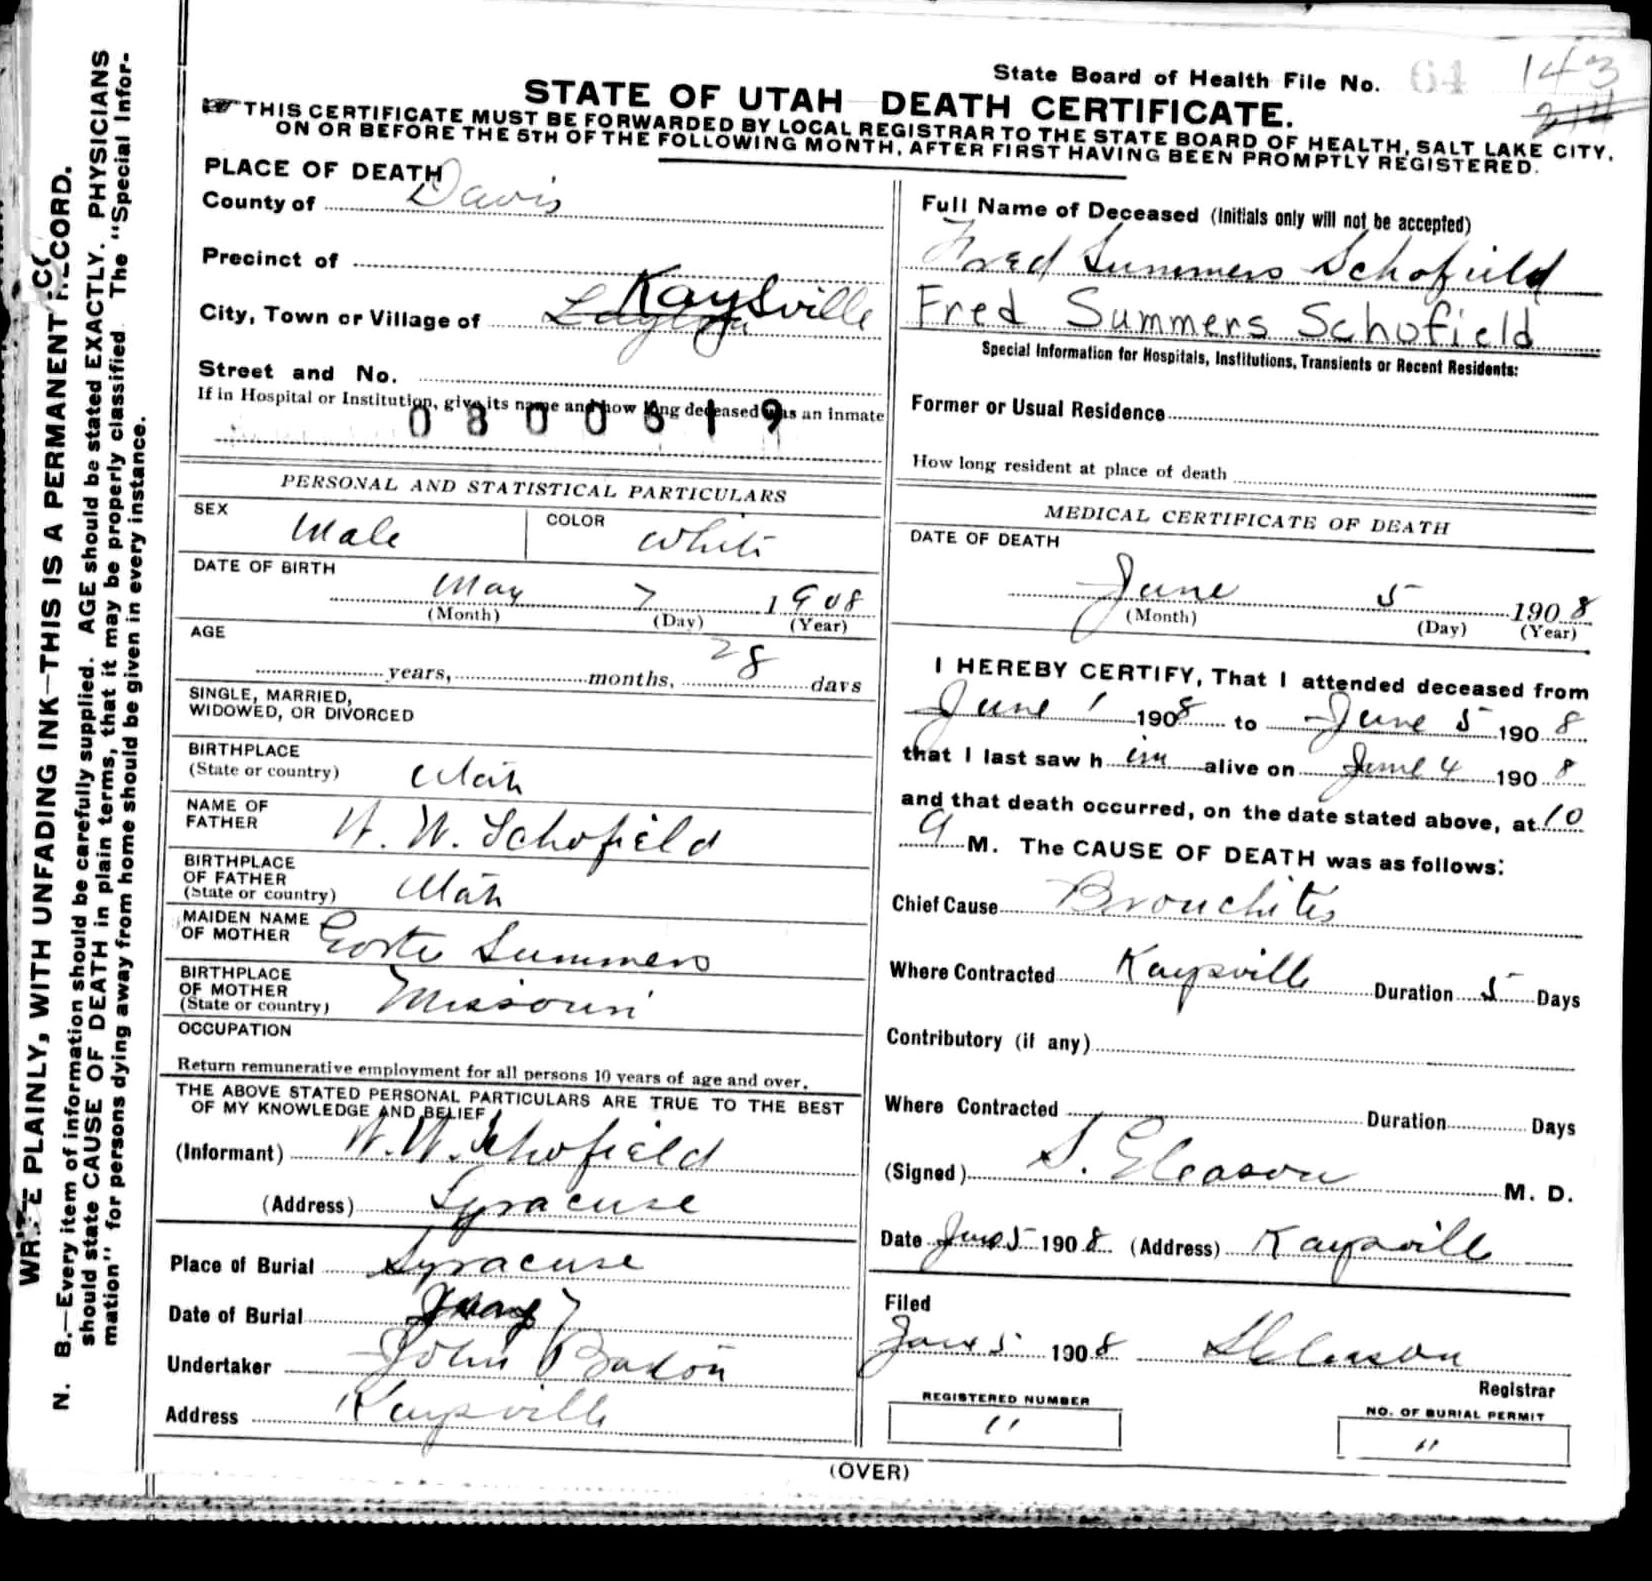 State Board of Health File No. 64 143
STATE OF UTAH DEATH CERTIFICATE.
THIS CERTIFICATE MUST BE FORWARDED BY LOCAL REGISTRAR TO THE STATE BOARD OF HEALTH, SALT LAKE CITY,
ON OR BEFORE THE 5TH OF THE FOLLOWING MONTH, AFTER FIRST HAVING BEEN PROMPTLY REGISTERED.
WRITE PLAINLY, WITH UNFADING INK—THIS IS A PERMANENT RECORD.
N. B.—Every item of information should be carefully supplied. AGE should be stated EXACTLY. PHYSICIANS
should state CAUSE OF DEATH in plain terms, that it may be properly classified The "Special Infor-
mation" for persons dying away from home should be given in every instance.
PLACE OF DEATH
County of Davis
Precinct of
City, Town or Village of Layton Kaysville
Street and No.
If in Hospital or Institution, give its name and how long deceased was an inmate
0800619
PERSONAL AND STATISTICAL PARTICULARS
SEX Male COLOR White
DATE OF BIRTH
May 7 1908
(Month) (Day) (Year)
AGE
years, months, 28 days
SINGLE, MARRIED,
WIDOWED, OR DIVORCED
BIRTHPLACE
(State or country) Utah
NAME OF
FATHER W. W. Schofield
BIRTHPLACE
OF FATHER
(State or country) Utah
MAIDEN NAME
OF MOTHER Summers
BIRTHPLACE
OF MOTHER
(State or country) Missouri
OCCUPATION
Return remunerative employment for all persons 10 years of age and over.
THE ABOVE STATED PERSONAL PARTICULARS ARE TRUE TO THE BEST
OF MY KNOWLEDGE AND BELIEF
(Informant) W. W. Schofield
(Address) Syracuse
Place of Burial Syracuse
Date of Burial 7
Undertaker John Barton
Address Kaysville
Full Name of Deceased (Initials only will not be accepted)
Fred Summers Schofield
Fred Summers Schofield
Special Information for Hospitals, Institutions, Transients or Recent Residents:
Former or Usual Residence
How long resident at place of death
MEDICAL CERTIFICATE OF DEATH
DATE OF DEATH
June 5 1908
(Month) (Day) (Year)
I HEREBY CERTIFY, That I attended deceased from
June 1 1908 to June 5 1908
that I last saw him alive on June 4 1908
and that death occurred, on the date stated above, at 10
a M. The CAUSE OF DEATH was as follows:
Chief Cause Bronchitis
Where Contracted Kaysville Duration 5 Days
Contributory (if any)
Where Contracted Duration Days
(Signed) S. Gleason M. D.
Date June 5 1908 (Address) Kaysville
Filed
June 5 1908 S Gleason
Registrar
REGISTERED NUMBER
11
NO. OF BURIAL PERMIT
11
(OVER)